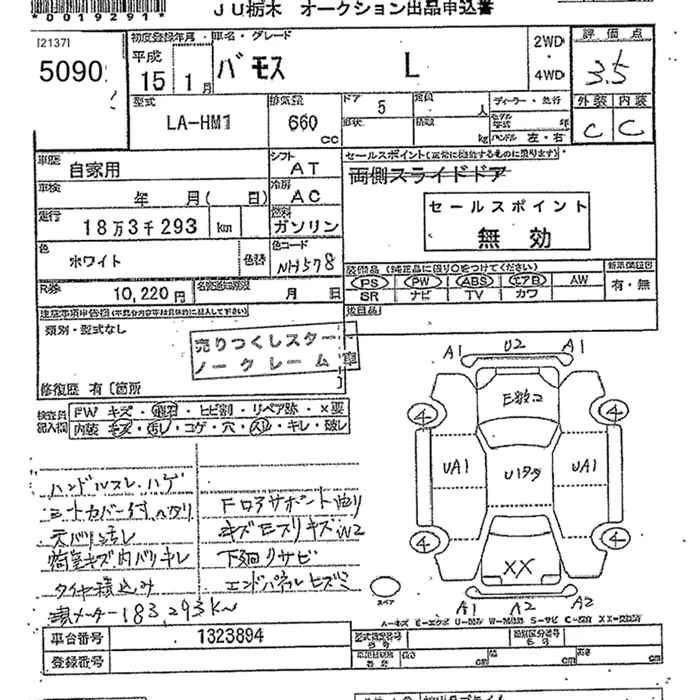 *0019291*
JU栃木 オークション出品申込書
[2137]
5090
初度登録年月
車名・グレード
評価点
平成
15
1月
バモス L
2WD
・
4WD
3.5
外装 内装
C C
型式
LA-HM1
排気量
660
cc
ドア
5
定員
人
kg
ディーラー・並行
モデル年式
年
ハンドル 左・右
車歴
自家用
シフト
AT
車検
年 月( 日)
冷房
AC
走行
18万3千293 km
燃料
ガソリン
色
ホワイト
色替
色コード
NH578
R券
10,220円
名変通知期限
月 日
セールスポイント(正常に機能するものに限ります)
両側スライドドア
セールスポイント
無効
装備品(純正品に限り○をつけてください)
PS PW ABS エアB AW
SR ナビ TV カワ
新車保証書
有・無
後日品
類別・型式なし
売りつくしスター
ノークレーム 車
修復歴 有〔箇所
検査員
記入欄
FW キズ・飛石・ヒビ割・リペア跡・×要
内装 キズ・汚レ・コゲ・穴・スレ・キレ・破レ
ハンドルスレ.ハゲ
シートカバー付.ヘタリ
天バリ汚レ
荷室キズ内バリキレ
タイヤ積込み
積メーター183,293km
キズEスリキズW2
下廻りサビ
A1 U2 A1
4 4
UA1 UA1
4 4
XX
スペア
A1 A2 A2
A-キズ E-エクボ S-サビ
車台番号
1323894
登録番号
型式指定番号
類別区分番号
長さ cm
幅 cm
高さ cm